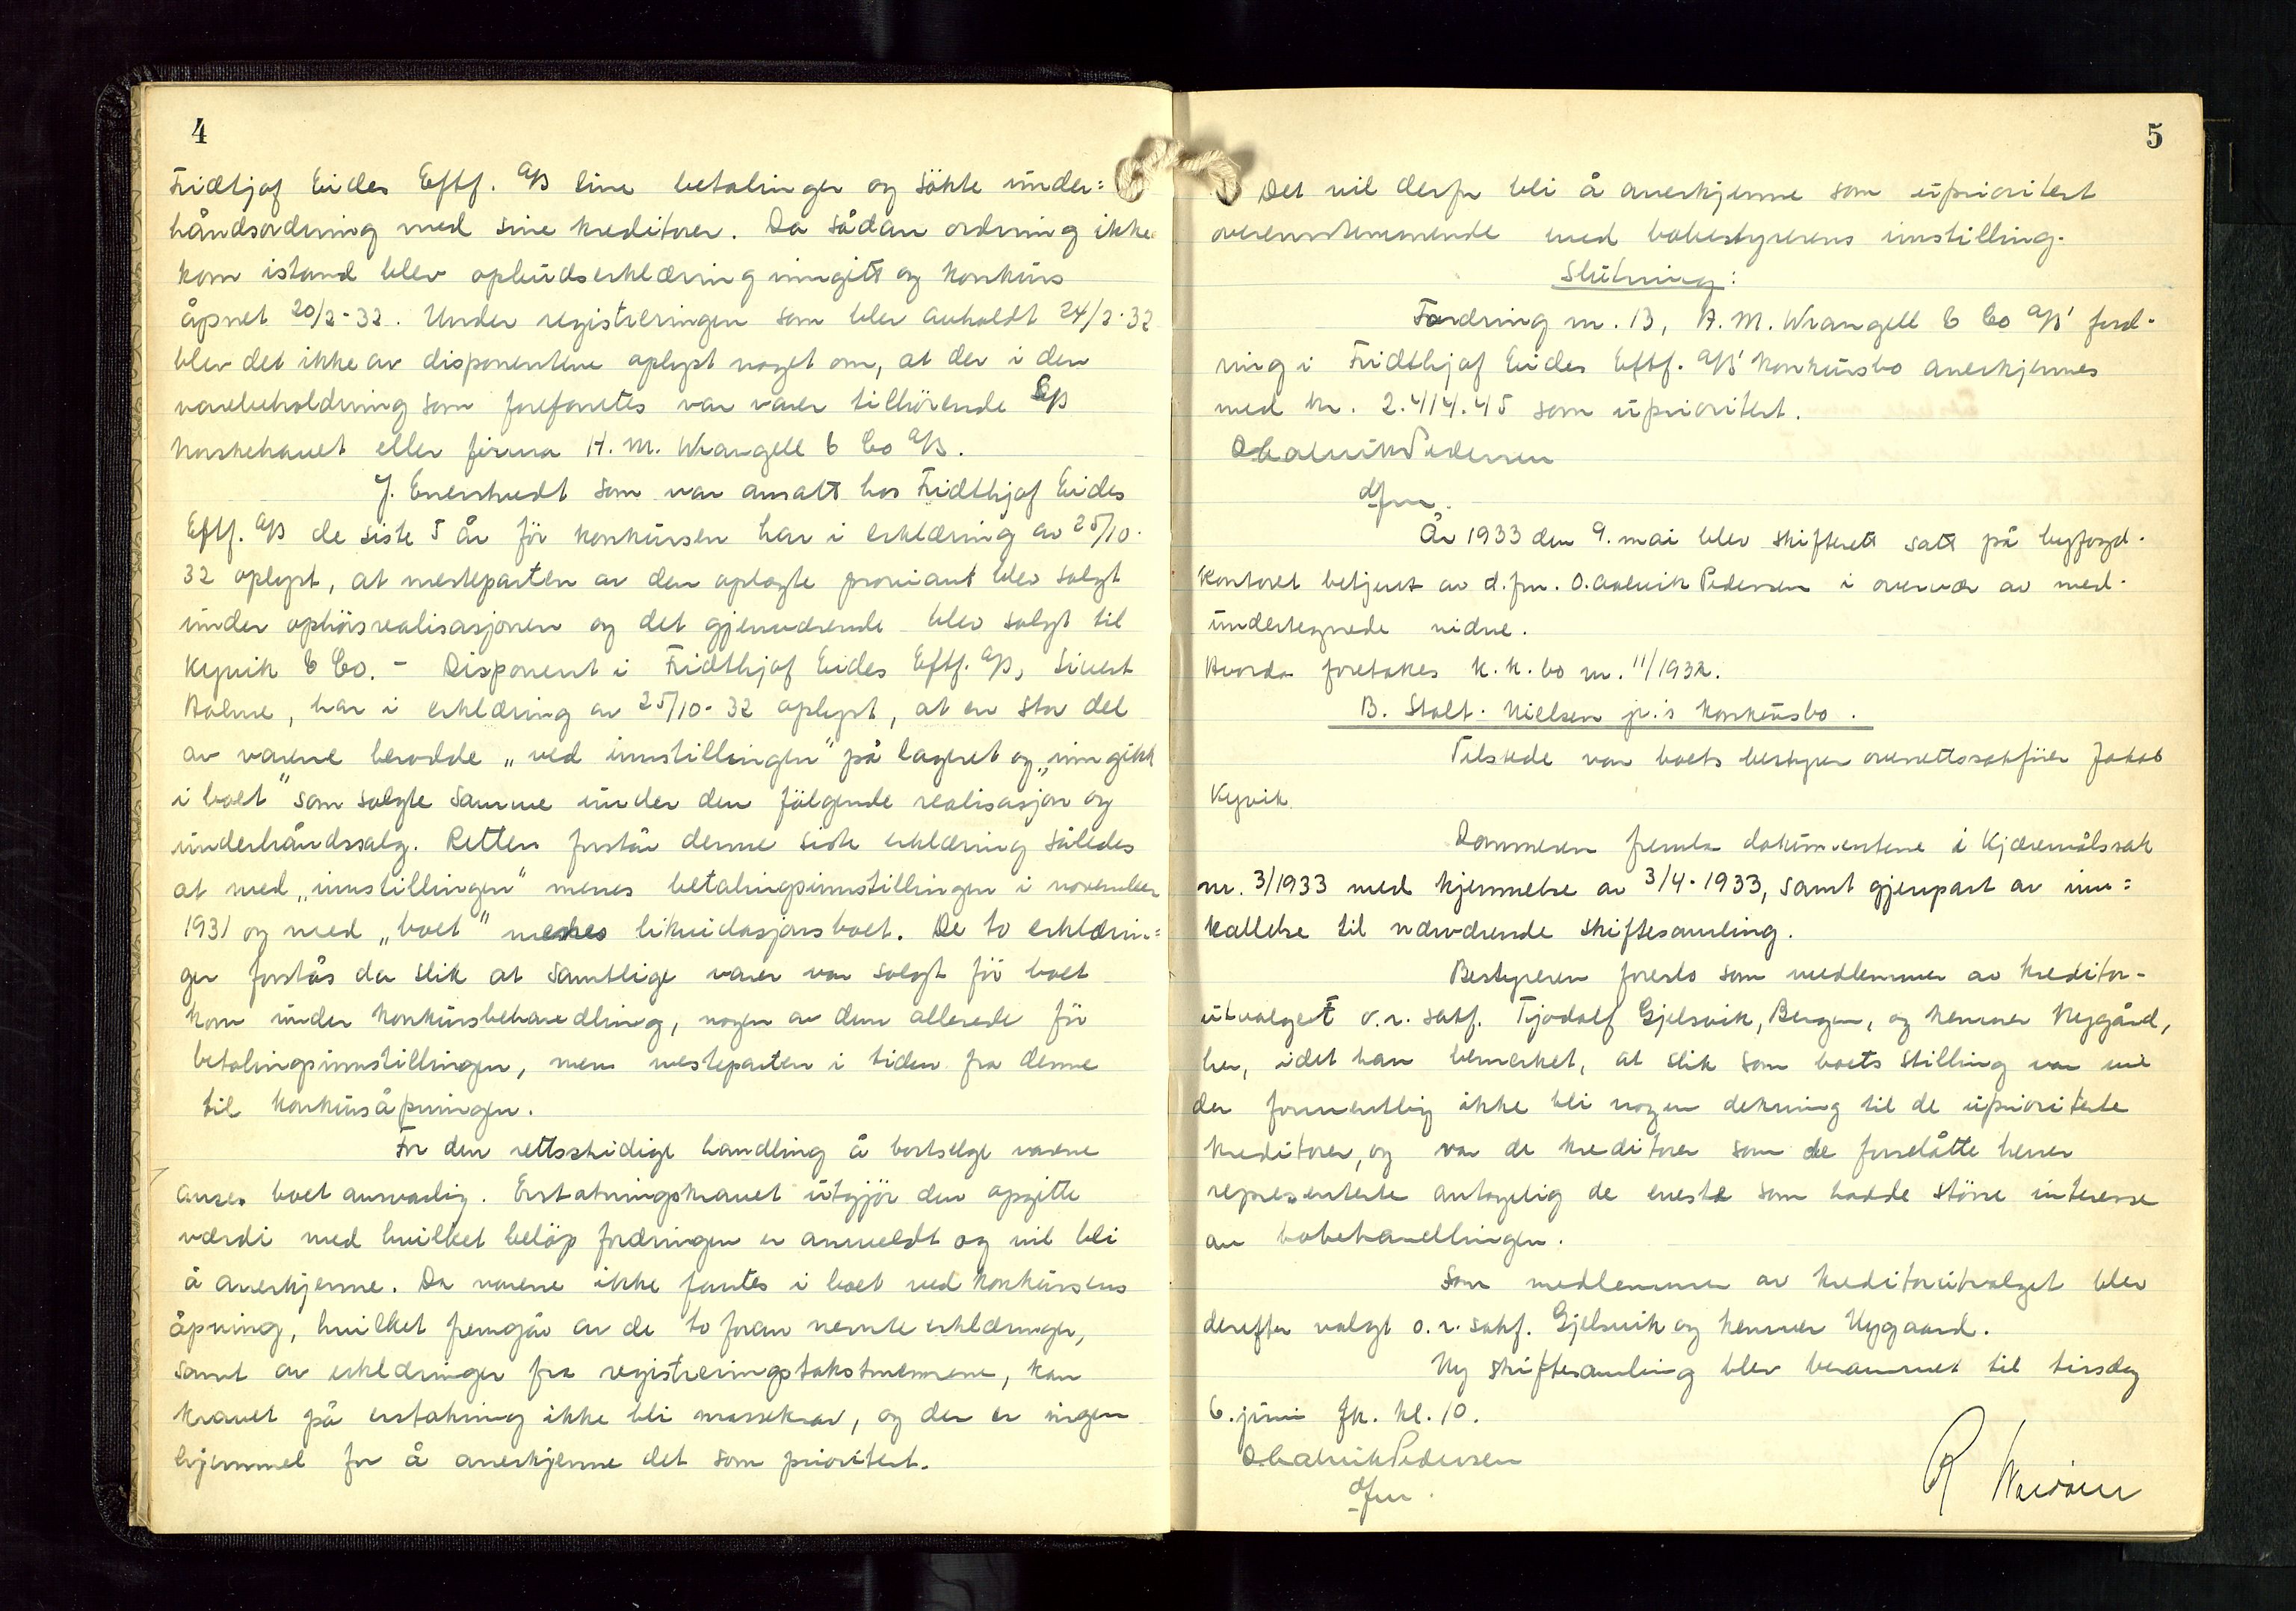 4
Fridtjof Eides Eftf. A/S sine betalinger og sökte under=
håndsordning med sine kreditorer. Da sådan ordning ikke
kom istand blev opbudserklæring inngitt og konkurs
åpnet 20/2-32. Under registreringen som blev avholdt 24/2-32
blev det ikke av disponentene oplyst noget om, at der i den
varebeholdning som forefantes var varer tilhörende A/S
Norskehavet eller firma H. M. Wrangell & Co A/S.
J. Enerhvedt som var ansatt hos Fridthjof Eides
Eftf. A/S de siste 5 år för konkursen har i erklæring av 25/10.
32 oplyst, at mesteparten av den oplagte proviant blev solgt
under ophörsrealisasjonen og det gjenværende blev solgt til
Kyvik & Co. - Disponent i Fridthjof Eides Eftf. A/S, Sivert
Bolme, har i erklæring av 25/10-32 oplyst, at en stor del
av varene berodde „ved innstillingen" på lageret og „inngikk
i boet" som solgte samme under den fölgende realisasjon og
underhåndssalg. Retten forstår denne siste erklæring således
at med „innstillingen" menes betalingsinnstillingen i november
1931 og med „boet" menes likvidasjonsboet. De to erklærin=
ger forstås da slik at samtlige varer var solgt för boet
kom under konkursbehandling, nogen av dem allerede för
betalingsinnstillingen, men mesteparten i tiden fra denne
til konkursåpningen.
For den rettsstridige handling å bortselge varene
anses boet ansvarlig. Erstatningskravet utgjör den opgitte
verdi med hvilket belöp fordringen er anmeldt og vil bli
å anerkjenne. Da varene ikke fantes i boet ved konkursens
åpning, hvilket fremgår av de to foran nevnte erklæringer,
samt av erklæringer fra registreringstakstmennene, kan
kravet på erstatning ikke bli massekrav, og der er ingen
hjemmel for å anerkjenne det som prioritert.
5
Det vil derfor bli å anerkjenne som uprioritert
overensstemmende med bobestyrerens innstilling.
Slutning:
Fordring nr. 13, H. M. Wrangell & Co A/S' ford-
ring i Fridthjof Eides Eftf. A/S' konkursbo anerkjennes
med kr. 2.414.45 som uprioritert.
O. Aalvik Pedersen
dfm.
År 1933 den 9. mai blev skifterett satt på byfogd-
kontoret betjent av d.fm. O. Aalvik Pedersen i overvær av med-
undertegnede vidne.
Hvorda foretakes k.k.bo nr. 11/1932.
B. Stolt-Nielsen jr.'s konkursbo.
Tilstede var boets bestyrer overrettssakförer Jakob
Kyvik.
Dommeren fremla dokumentene i kjæremålssak
nr. 3/1933 med kjennelse av 3/4-1933, samt gjenpart av inn=
kallelse til nærværende skiftesamling.
Bestyreren foreslo som medlemmer av kreditor-
utvalget o.r. sakf. Tjodolf Gjelsvik, Bergen, og kemner Nygård,
her, idet han bemerket, at slik som boets stilling var vil
der formentlig ikke bli nogen dekning til de uprioriterte
kreditorer, og var de kreditorer som de foreslåtte herrer
representerte antagelig de eneste som hadde större interesse
av bobehandlingen.
Som medlemmer av kreditorutvalget blev
derefter valgt o.r. sakf. Gjelsvik og kemner Nygaard.
Ny skiftesamling blev berammet til tirsdag
6. juni fk. kl. 10.
O. Aalvik Pedersen
dfm.